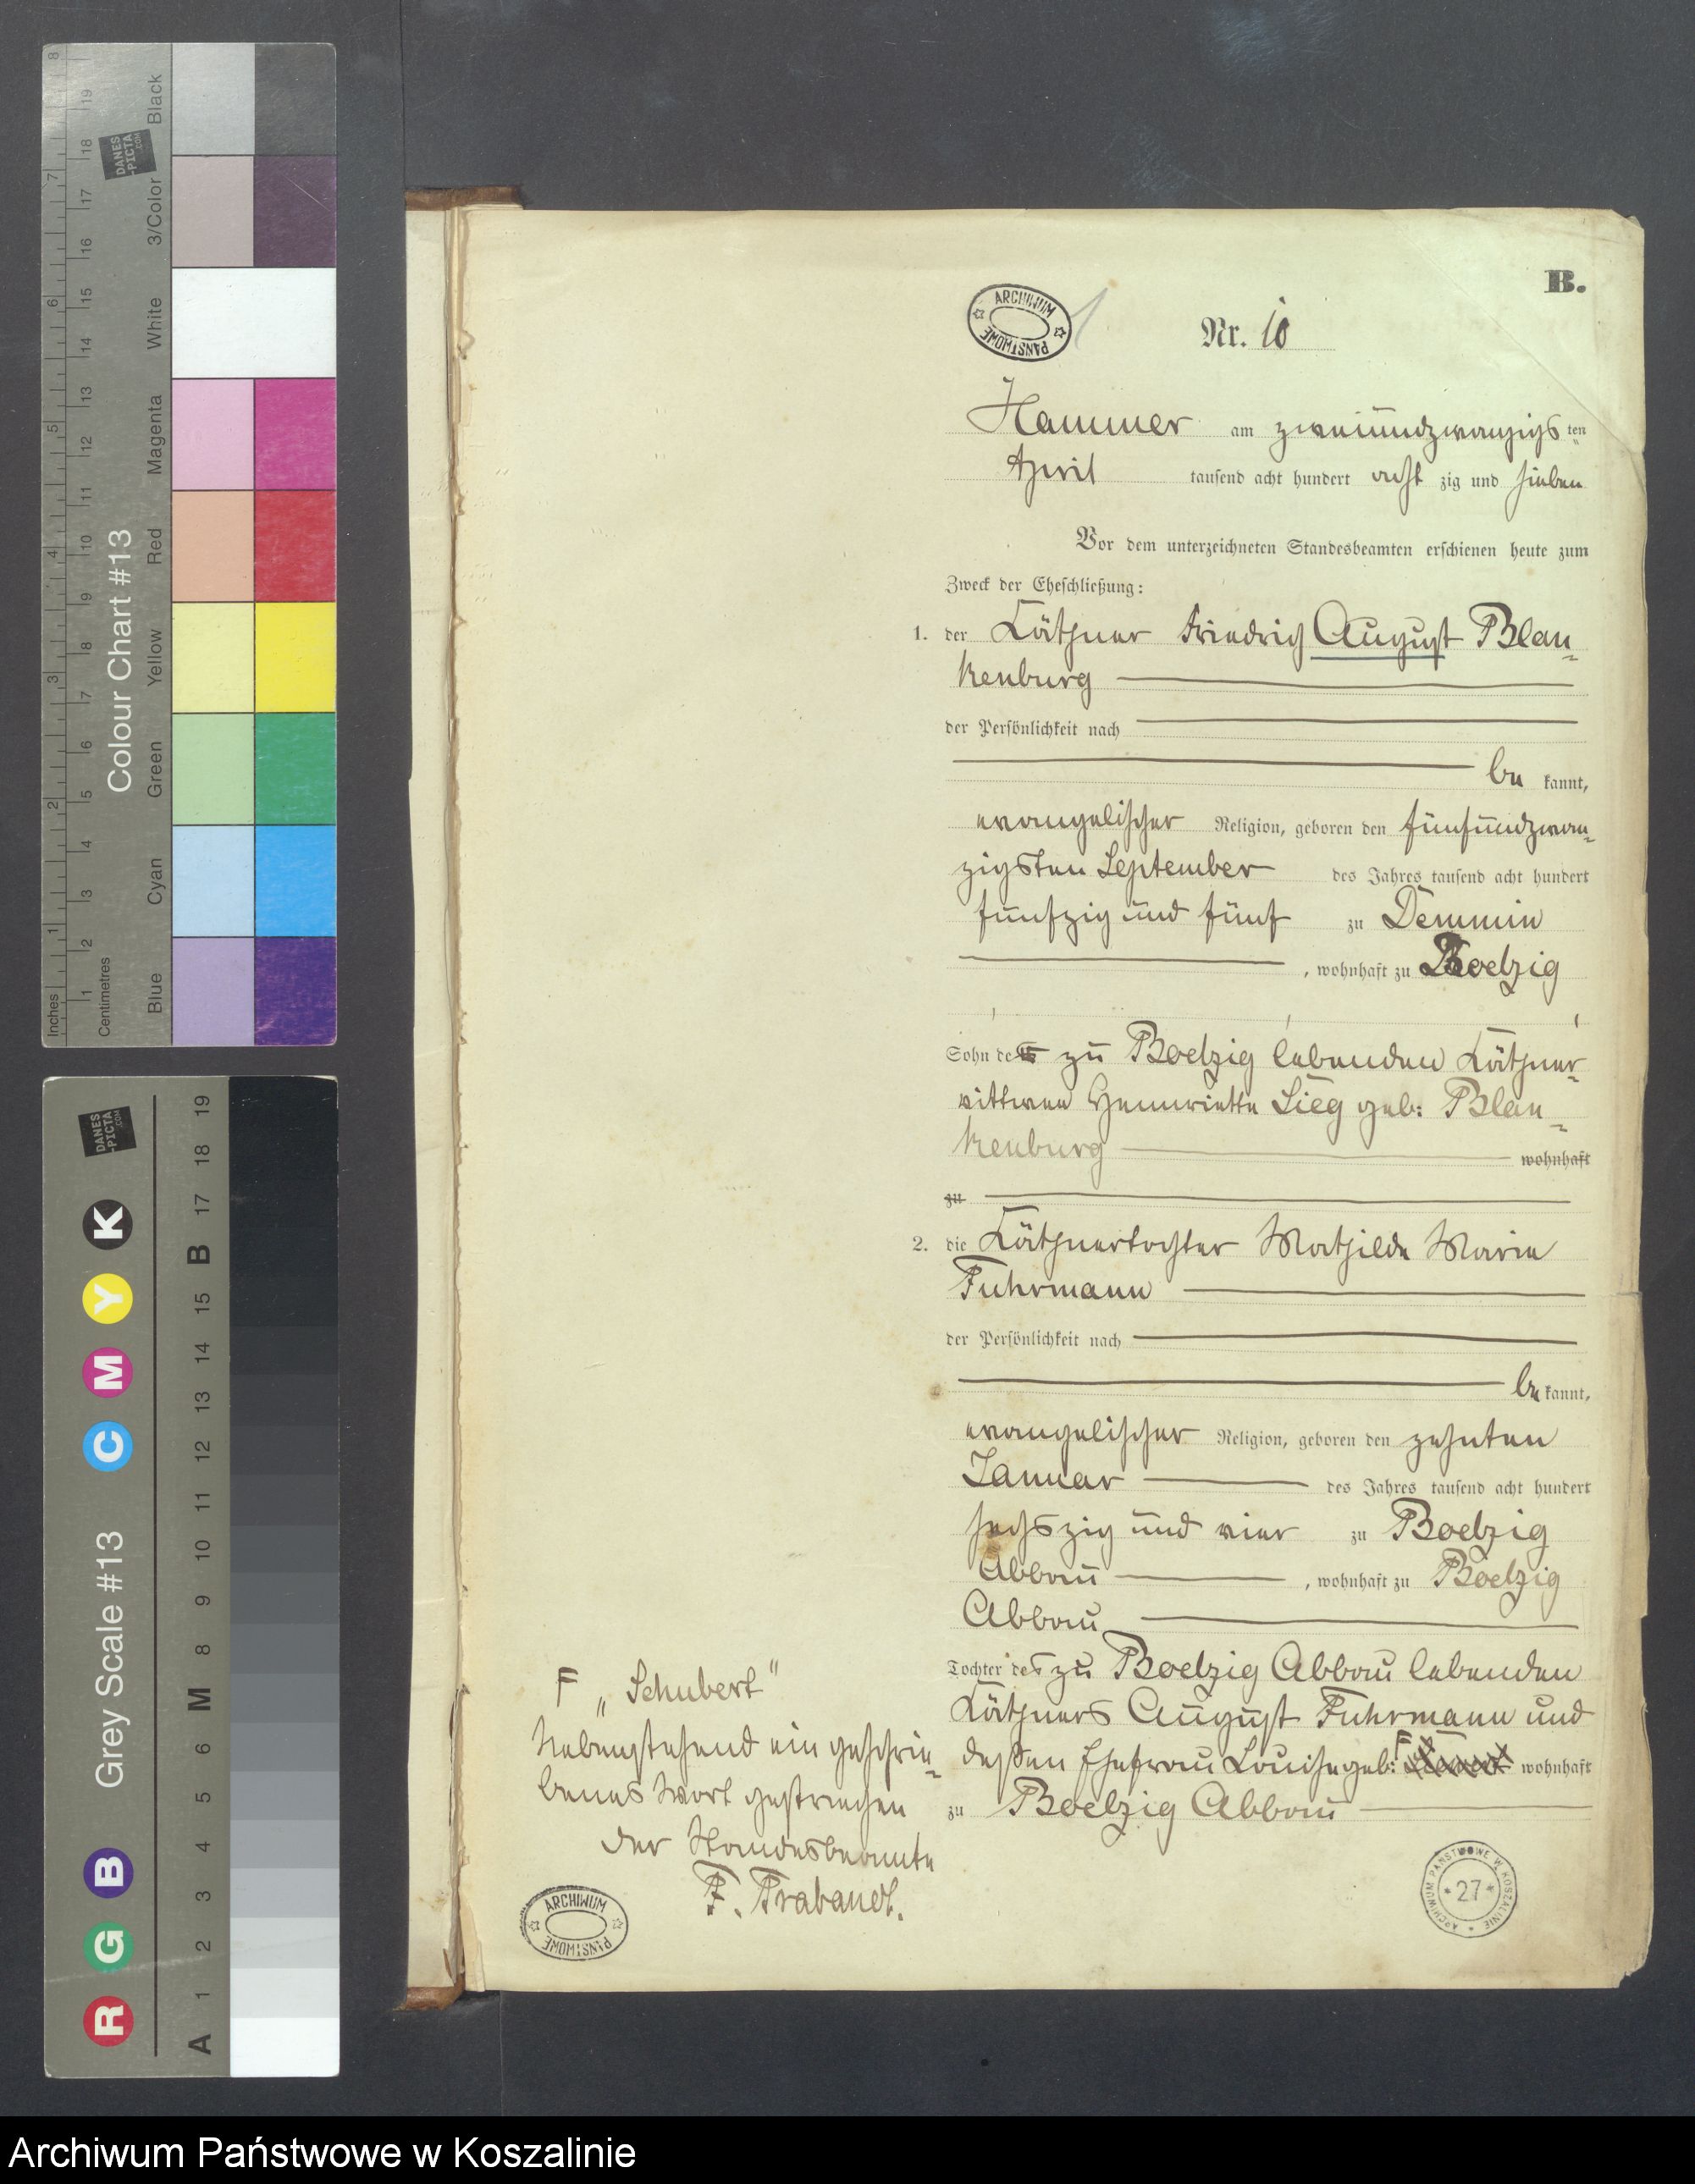 B.
Nr. 10
Hammer am zweiundzwanzigs ten
April tausend acht hundert acht zig und sieben
Vor dem unterzeichneten Standesbeamten erschienen heute zum
Zweck der Eheschließung:
1. der Käthner Friedrich August Blan-
kenburg
der Persönlichkeit nach
be kannt,
evangelischer Religion, geboren den fünfundzwan-
zigsten September des Jahres tausend acht hundert
funfzig und fünf zu Demmin
, wohnhaft zu Boelzig
Sohn des zu Boelzig lebenden Käthner-
wittwe Hennriette Sieg geb: Blan-
kenburg wohnhaft
zu
2. die Käthnertochter Mathilde Marie
Fuhrmann
der Persönlichkeit nach
be kannt,
evangelischer Religion, geboren den zehnten
Januar des Jahres tausend acht hundert
sechszig und vier zu Boelzig
Abbau , wohnhaft zu Boelzig
Abbau
Tochter des zu Boelzig Abbau lebenden
Käthners August Fuhrmann und
deßen Ehefrau Louise geb: F wohnhaft
zu Boelzig Abbau
F „Schubert"
Nebenstehend ein geschrie-
benes Wort gestrichen
Der Standesbeamte
F. Trabandt.
ARCHIWUM PAŃSTWOWE
ARCHIWUM PAŃSTWOWE
ARCHIWUM PAŃSTWOWE W KOSZALINIE
* 27 *
Colour Chart #13
Black
3/Color
White
Magenta
Red
Yellow
Green
Cyan
Blue
Inches
1 2 3 4 5 6 7 8
Centimetres
1 2 3 4 5 6 7 8 9 10 11 12 13 14 15 16 17 18 19
DANES
-PICTA
.COM
Grey Scale #13
R G B C M Y K
A 1 2 3 4 5 6 M 8 9 10 11 12 13 14 15 B 17 18 19
DANES
-PICTA
.COM
Archiwum Państwowe w Koszalinie